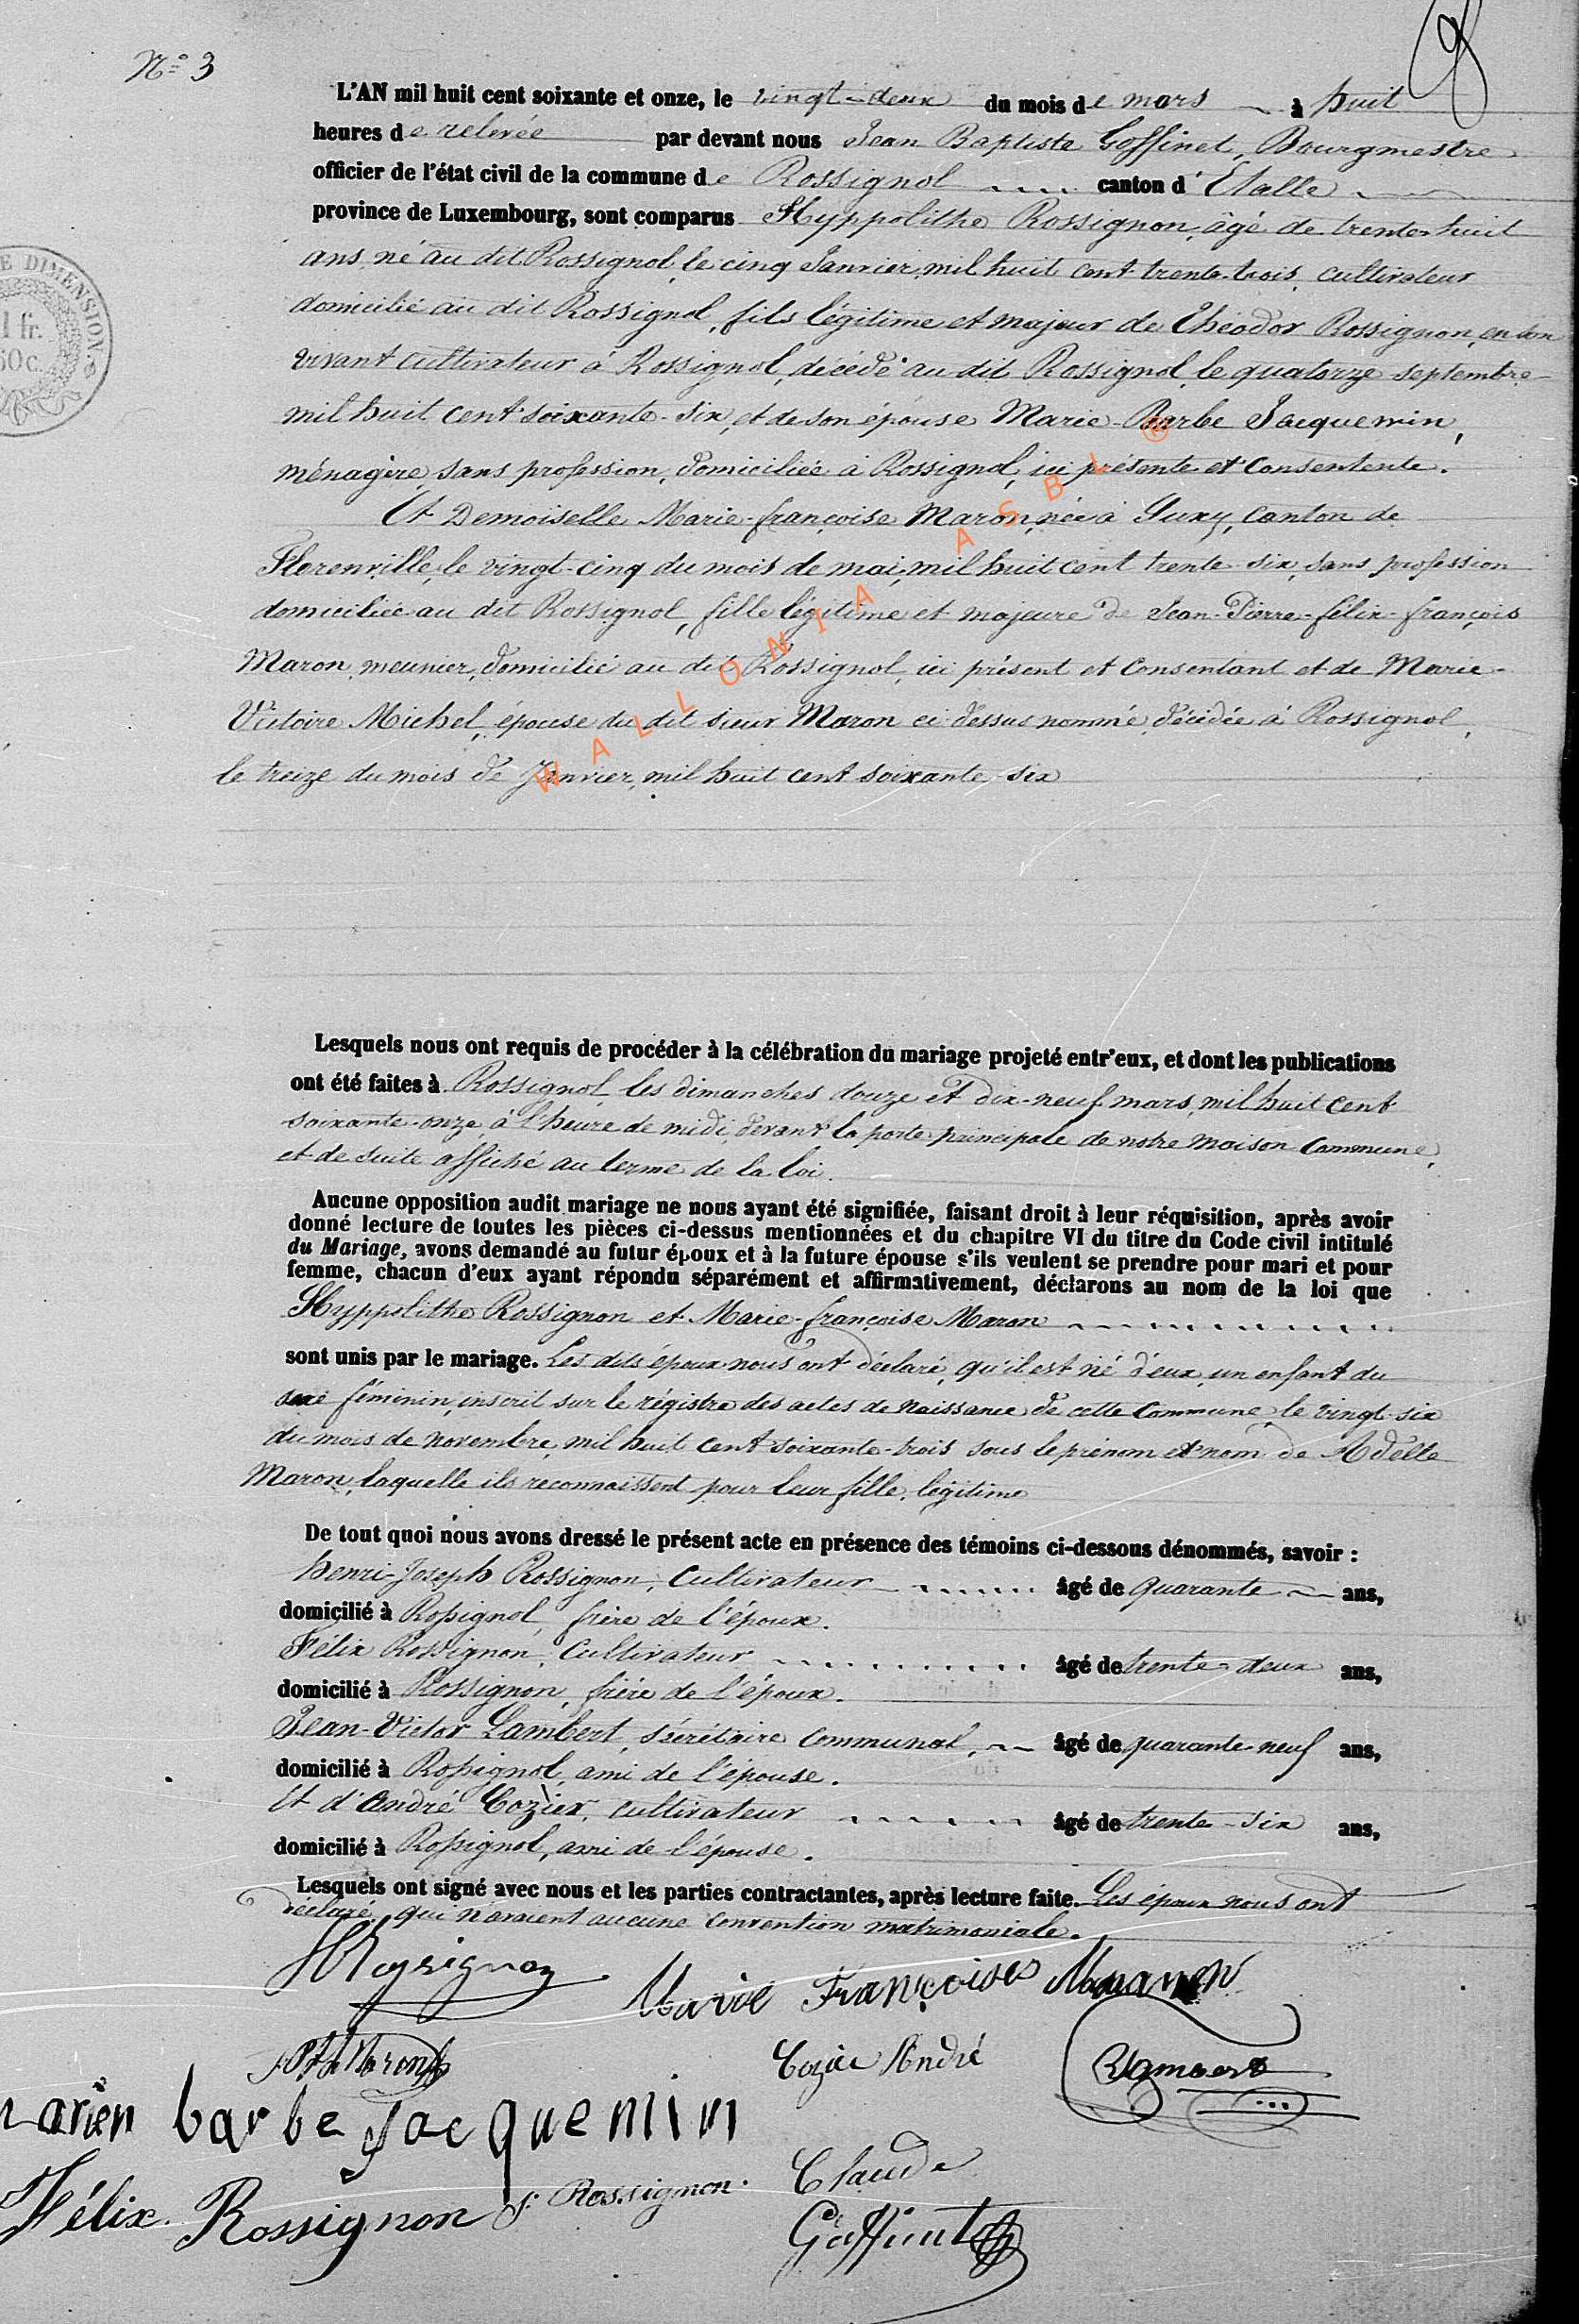 N.° 3
L'AN mil huit cent soixante et onze, le vingt-deux du mois de mars à huit
heures de relevée par devant nous Jean Baptiste Goffinet, Bourgmestre
officier de l'état civil de la commune de Rossignol canton d'Etalle
province de Luxembourg, sont comparus Hyppolithe Rossignon, âgé de trente huit
ans, né au dit Rossignol, le cinq Janvier, mil huit cent trente-trois, cultivateur
domicilié au dit Rossignol, fils légitime et majeur de Théodor Rossignon, en son
vivant cultivateur à Rossignol, décédé au dit Rossignol, le quatorze septembre
mil huit cent soixante-six, et de son épouse Marie-Barbe Jacquemin,
ménagère, sans profession, domiciliée à Rossignol, ici présente et consentente.
Et Demoiselle Marie-françoise Maron, née à Suxy, canton de
Florenville, le vingt-cinq du mois de mai, mil huit cent trente-six, sans profession
domiciliée au dit Rossignol, fille légitime et majeure de Jean-Pierre-félix-françois
Maron, meunier, domicilié au dit Rossignol, ici présent et consentant et de Marie-
Victoire Michel, épouse du dit sieur Maron ci-dessus nommé, décédée à Rossignol,
le treize du mois de Janvier, mil huit cent soixante-six
WALLONIA ASBL ®
E DIMENSION.
1 fr.
50 c.
Lesquels nous ont requis de procéder à la célébration du mariage projeté entr'eux, et dont les publications
ont été faites à Rossignol, les dimanches douze et dix-neuf mars, mil huit cent
soixante-onze à l'heure de midi, devant la porte principale de notre maison Commune,
et de suite affiché au terme de la loi.
Aucune opposition audit mariage ne nous ayant été signifiée, faisant droit à leur réquisition, après avoir
donné lecture de toutes les pièces ci-dessus mentionnées et du chapitre VI du titre du Code civil intitulé
du Mariage, avons demandé au futur époux et à la future épouse s'ils veulent se prendre pour mari et pour
femme, chacun d'eux ayant répondu séparément et affirmativement, déclarons au nom de la loi que
Hyppolithe Rossignon et Marie-françoise Maron
sont unis par le mariage. Les dits époux nous ont déclaré, qu'il est né d'eux, un enfant du
sexe féminin, inscrit sur le régistre des actes de Naissance de cette Commune, le vingt-six
du mois de novembre, mil huit cent soixante-trois sous le prénom et nom de Adelle
Maron, laquelle ils reconnaissent pour leur fille, légitime
De tout quoi nous avons dressé le présent acte en présence des témoins ci-dessous dénommés, savoir :
henri-Joseph Rossignon, Cultivateur âgé de quarante ans,
domicilié à Rossignol, frère de l'époux.
Félix Rossignon, Cultivateur âgé de trente-deux ans,
domicilié à Rossignon, frère de l'époux.
Jean-Victor Lambert, sécrétaire communal, âgé de quarante-neuf ans,
domicilié à Rossignol, ami de l'épouse.
Et d'André Cozier, cultivateur âgé de trente-six ans,
domicilié à Rossignol, ami de l'épouse.
Lesquels ont signé avec nous et les parties contractantes, après lecture faite. Les époux nous ont
déclaré, qui n'avaient aucune convention matrimoniale.
HRossignon
Marie Françoises
Maron
Cozier André
Lambert
barbe Jacquemin
Claude
Félix Rossignon J. Rossignon.
Goffinet